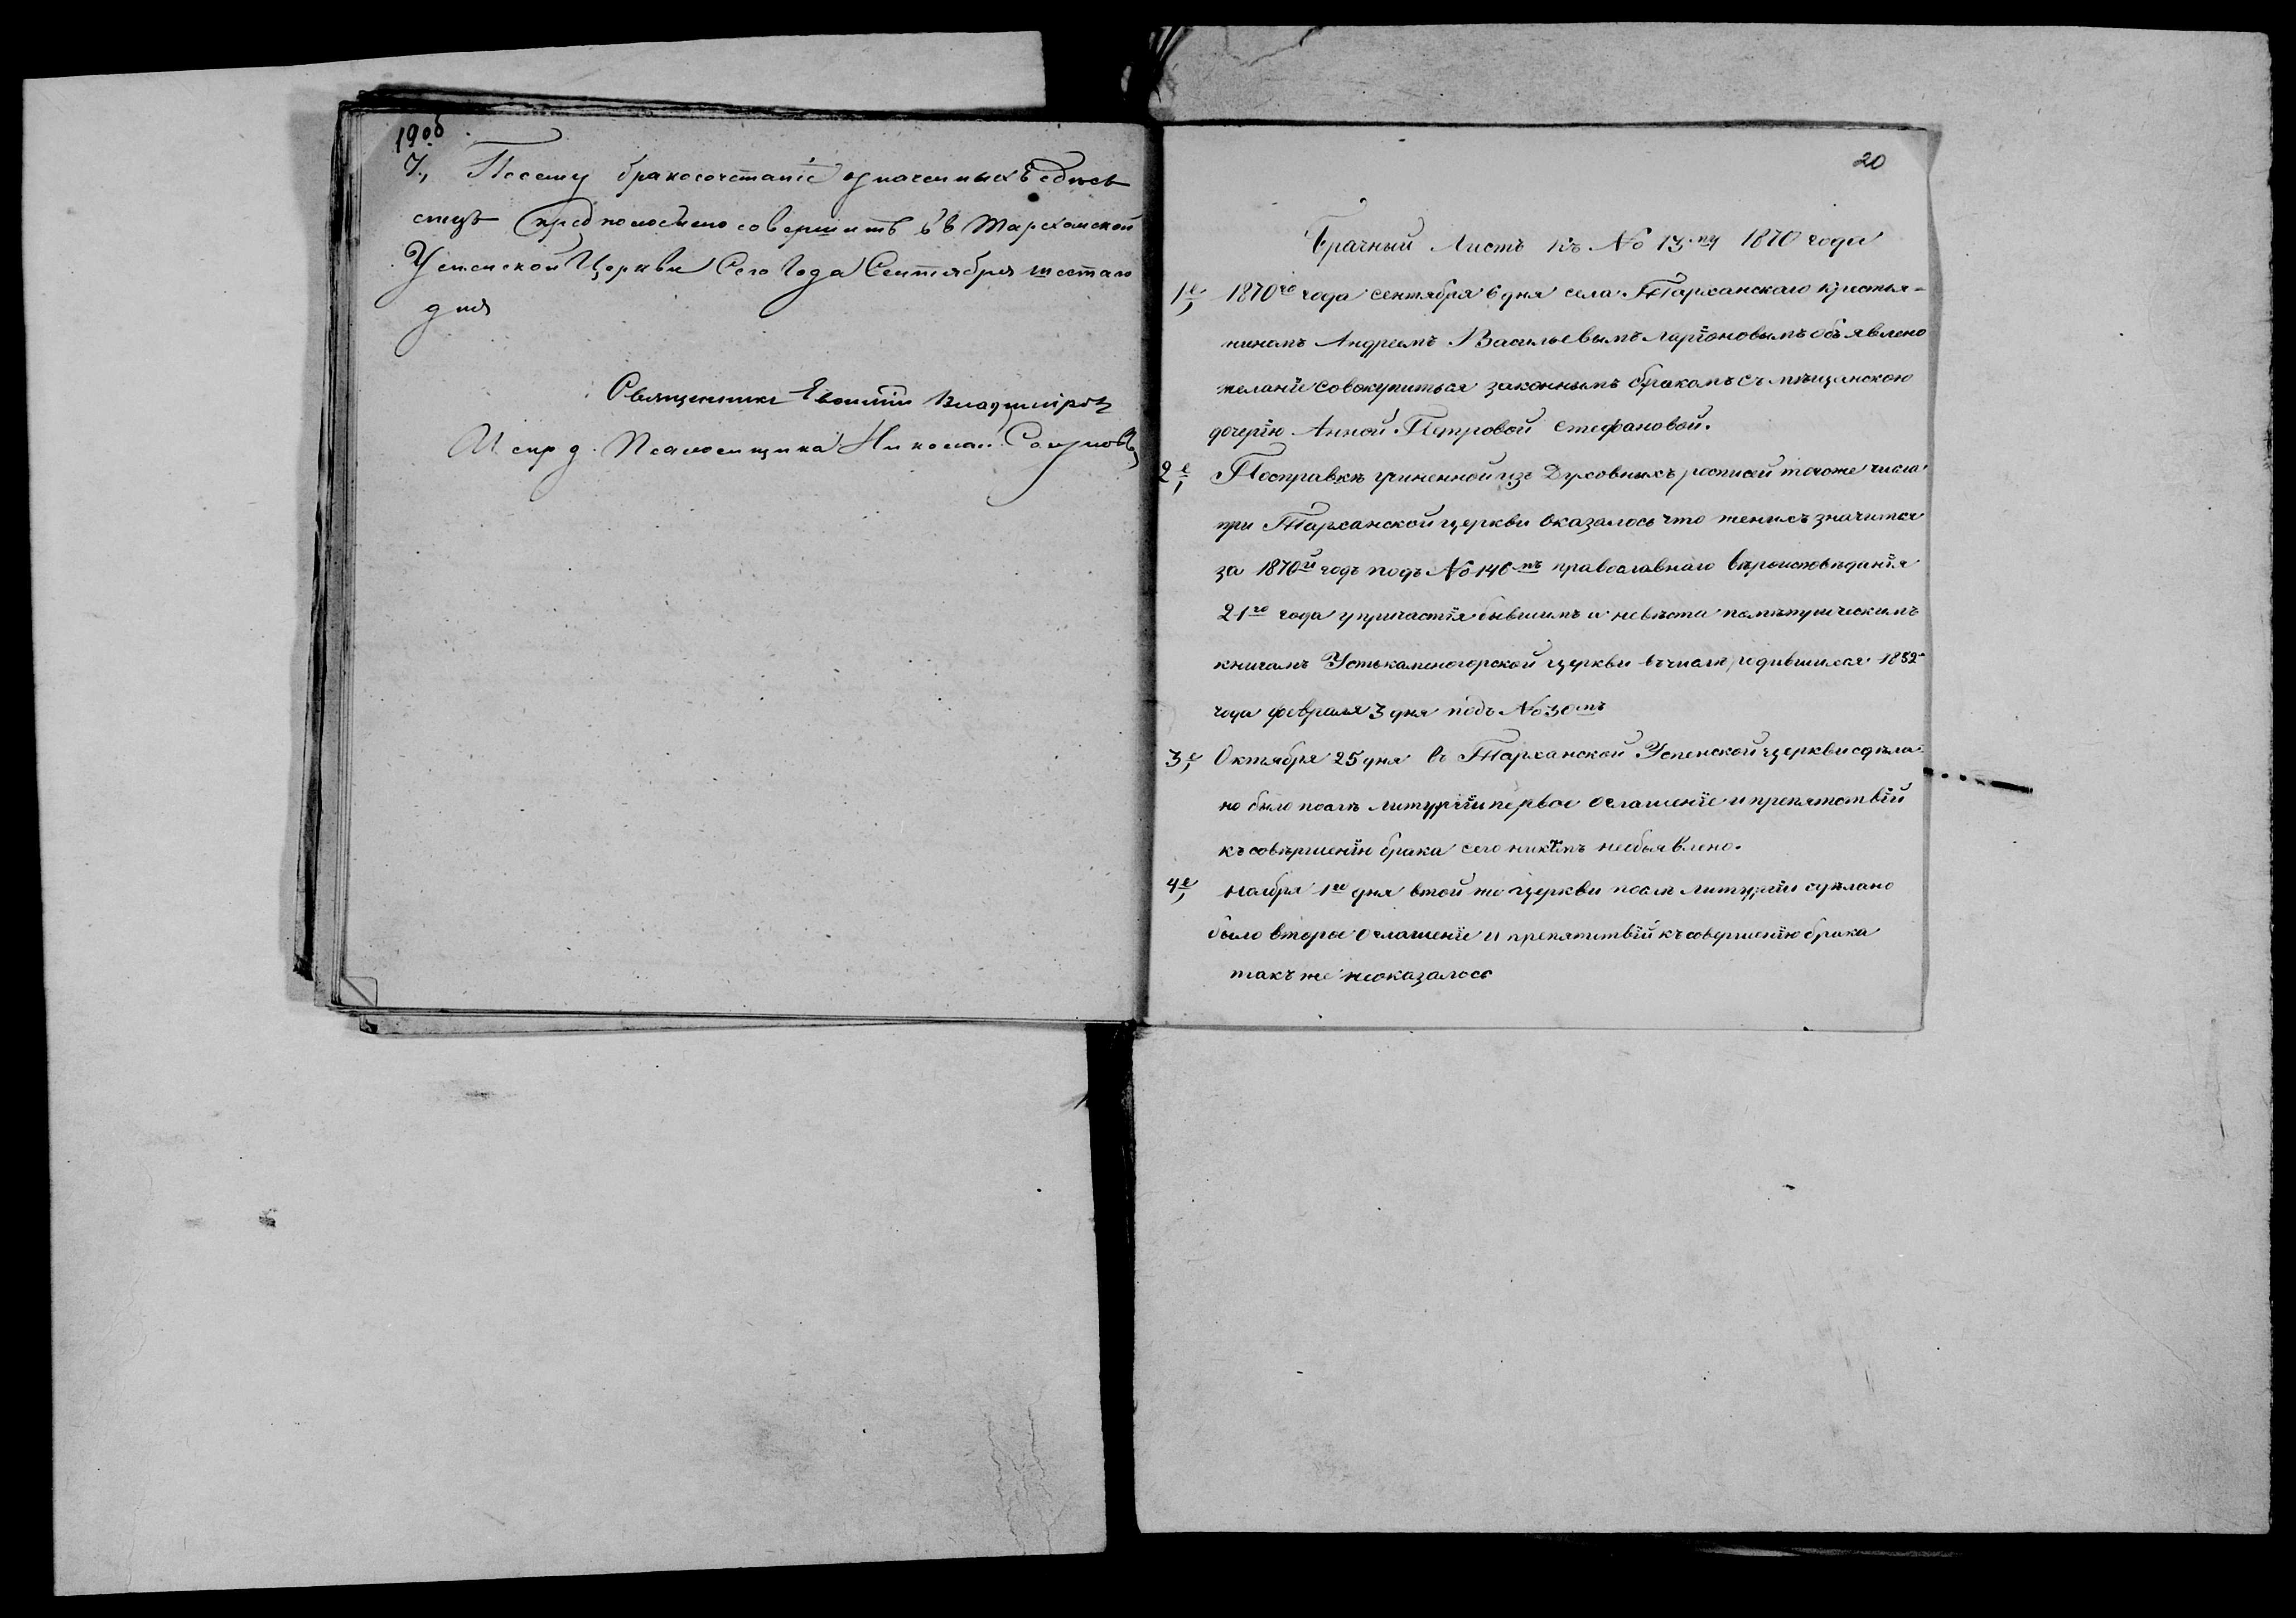 19об
7., Посему бракосочетаніе означенныхъ
предположено совершить въ Тарханской
Успенской Церкви Сего Года Сентября шестаго
дня
Священникъ Евѳимій Владиміровъ
Испр д. Псаломщика Николай
20
Брачный Листъ къ № 13му 1870 года
1е, 1870го года сентября 6 дня села Тарханскаго кристья-
ниномъ Андреемъ Васильевымъ Ларіоновымъ объявлено
желаніе совокупиться законнымъ бракомъ съ мѣщанскою
дочерію Анной Петровой Стефановой.
2е, Посправкѣ учиненной изъ Духовныхъ росписей тогоже числа
при Тарханской церкви оказалось что женихъ значится
за 1870й годъ подъ № 146мъ православнаго вѣроисповѣданія
21го года упричастія бывшимъ и невѣста пометрическимъ
книгамъ Устькаменогорской церкви вчислѣ родившихся 1852
года февраля 3 дня подъ № 30мъ
3е, Октября 25 дня во Тарханской Успенской церкви сдѣла
но было послѣ литургіи первое оглашеніе и препятствій
къ совершенію брака сего никѣмъ необъявлено.
4е, Ноября 1го дня втой же церкви послѣ литургіи сдѣлано
было второе оглашеніе и препятствій къ совершенію брака
такъ же неоказалось